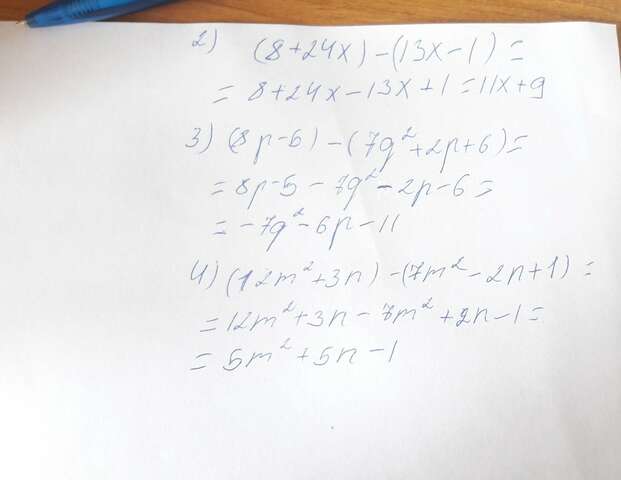 2) (8+24x)-(13x-1)=
= 8+24x-13x+1=11x+9
3) (8p-5)-(7q²+2p+6)=
= 8p-5-7q²-2p-6=
= -7q²-6p-11
4) (12m²+3n)-(7m²-2n+1)=
= 12m²+3n-7m²+2n-1=
= 5m²+5n-1